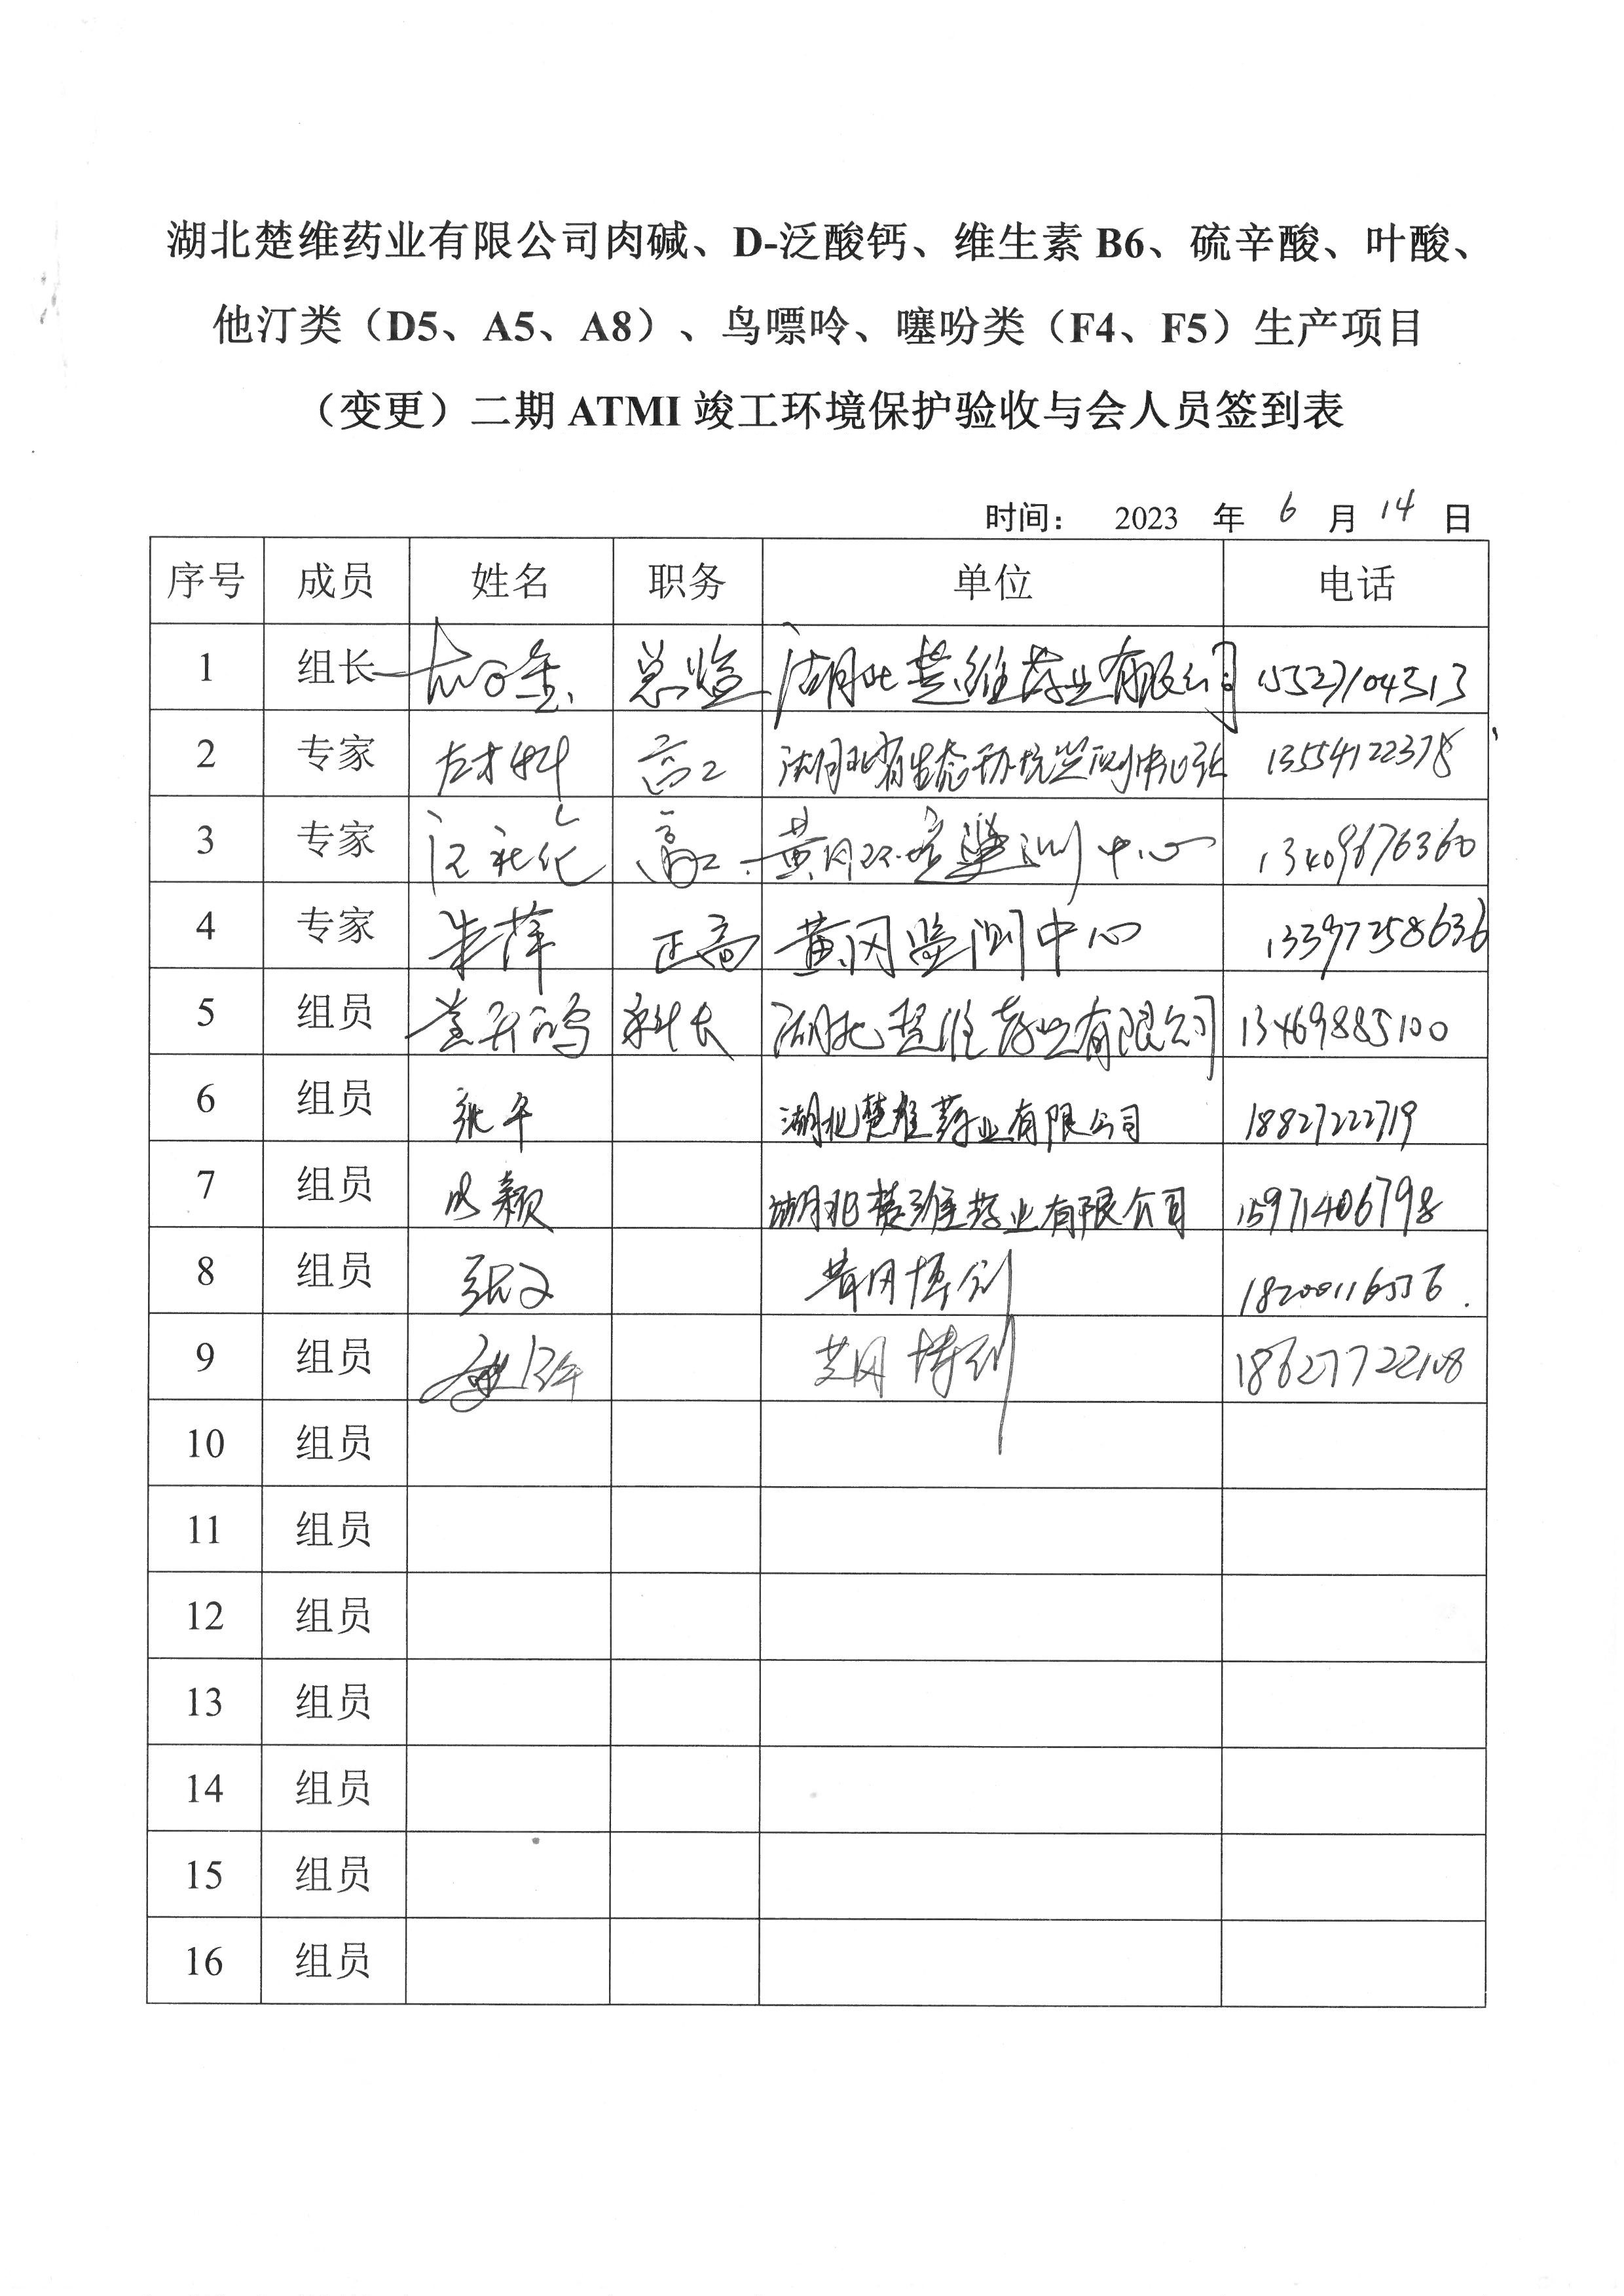 湖北楚维药业有限公司肉碱、D-泛酸钙、维生素 B6、硫辛酸、叶酸、
他汀类（D5、A5、A8）、鸟嘌呤、噻吩类（F4、F5）生产项目
（变更）二期 ATMI 竣工环境保护验收与会人员签到表
时间： 2023 年 6 月 14 日
序号 成员 姓名 职务 单位 电话
1 组长 总监 湖北楚维药业有限公司 15527104513
2 专家 高工 湖北省生态环境监测中心站 13554122378
3 专家 高工 13409676360
4 专家 朱萍 正高 黄冈监测中心 13397258636
5 组员 科长 湖北楚维药业有限公司 13469885100
6 组员 张平 湖北楚维药业有限公司 18827222719
7 组员 湖北楚维药业有限公司 15971406798
8 组员 张文 黄冈博创
9 组员 黄冈博创 18627722108
10 组员
11 组员
12 组员
13 组员
14 组员
15 组员
16 组员